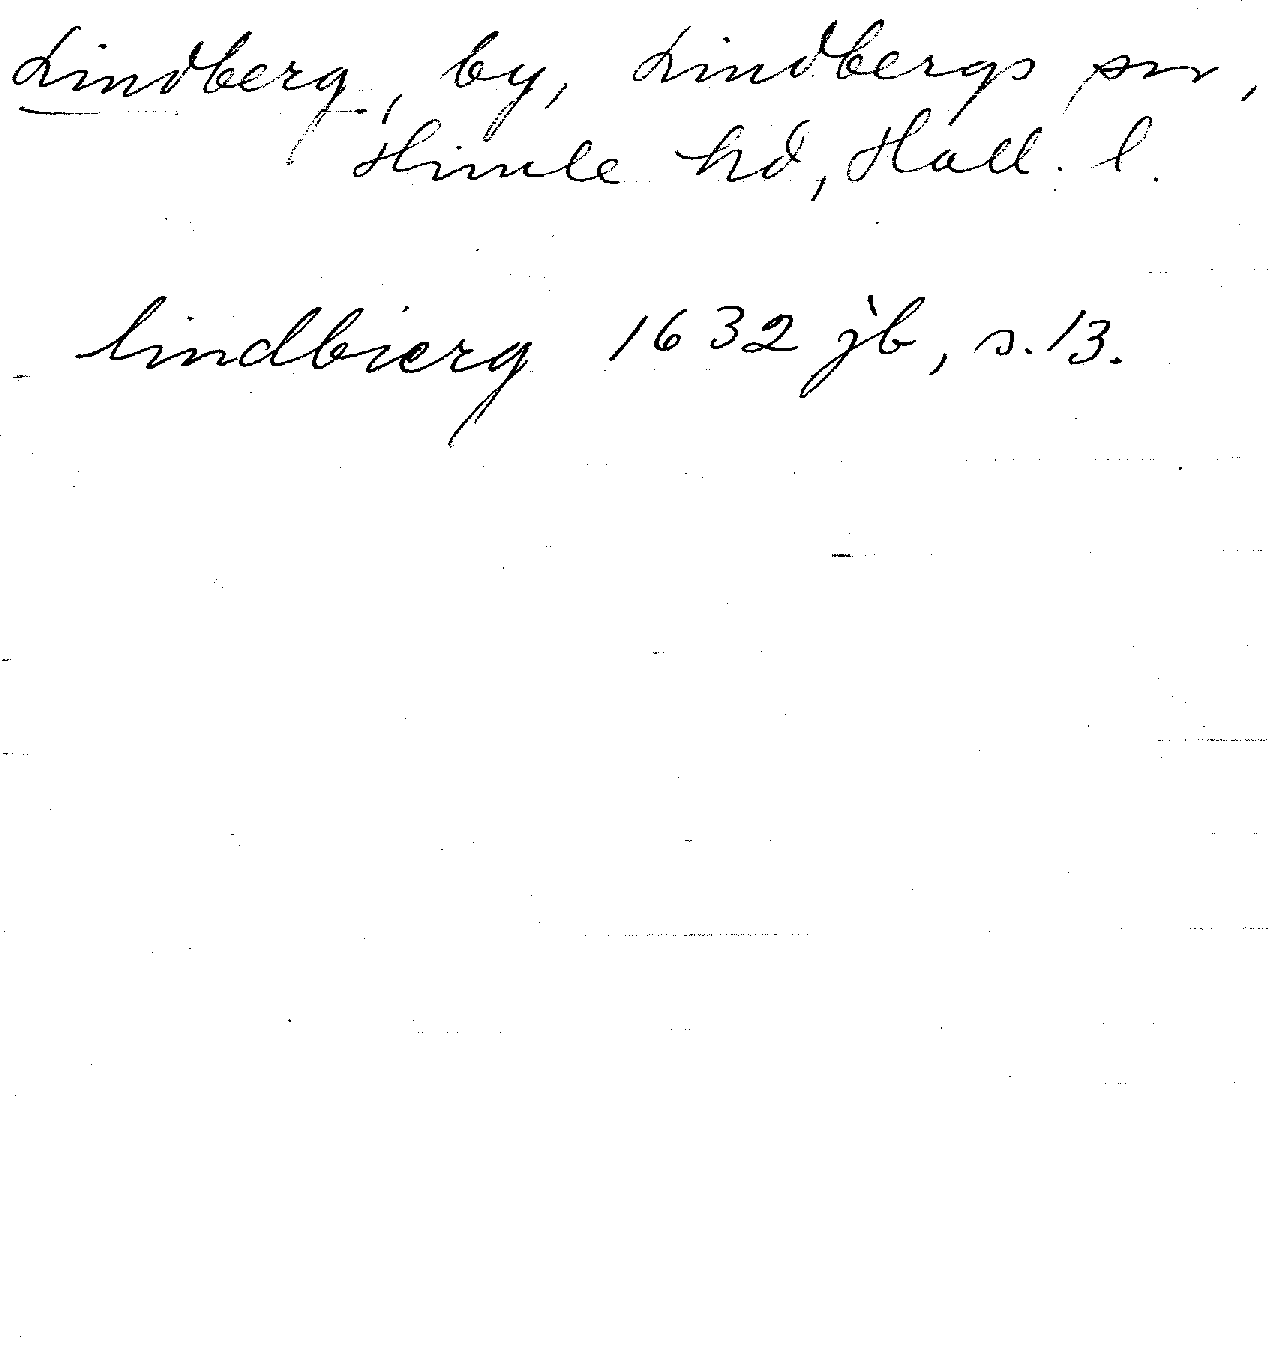 Lindberg, by, Lindbergs sn,
Himle hd, Hall. l.
lindbierg 1632 jb, s. 13.